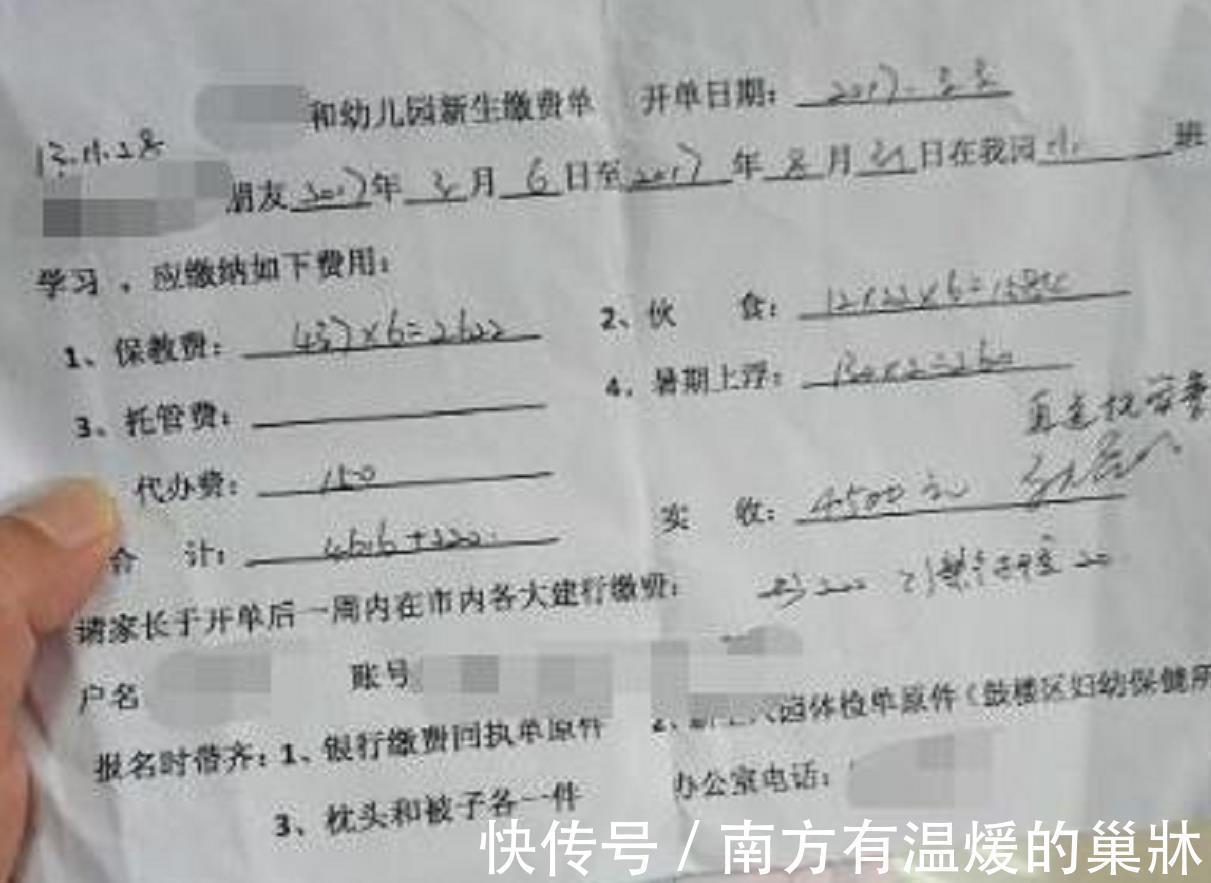 和幼儿园新生缴费单 开单日期:2017.3.3
13.11.28
朋友2017年3月6日至2017年8月31日在我园小班
学习,应缴纳如下费用:
1、保教费:437×6=2622
2、伙 食:12×22×6=1584
3、托管费:
4、暑期上浮:130×2=260
代办费:150
合 计:4616+220.
实 收:4500元
请家长于开单后一周内在市内各大建行缴费:
户名 账号
报名时带齐:1、银行缴费回执单原件
园体检单原件(鼓楼区妇幼保健所
3、枕头和被子各一件
办公室电话:
快传号/南方有温煖的巢牀